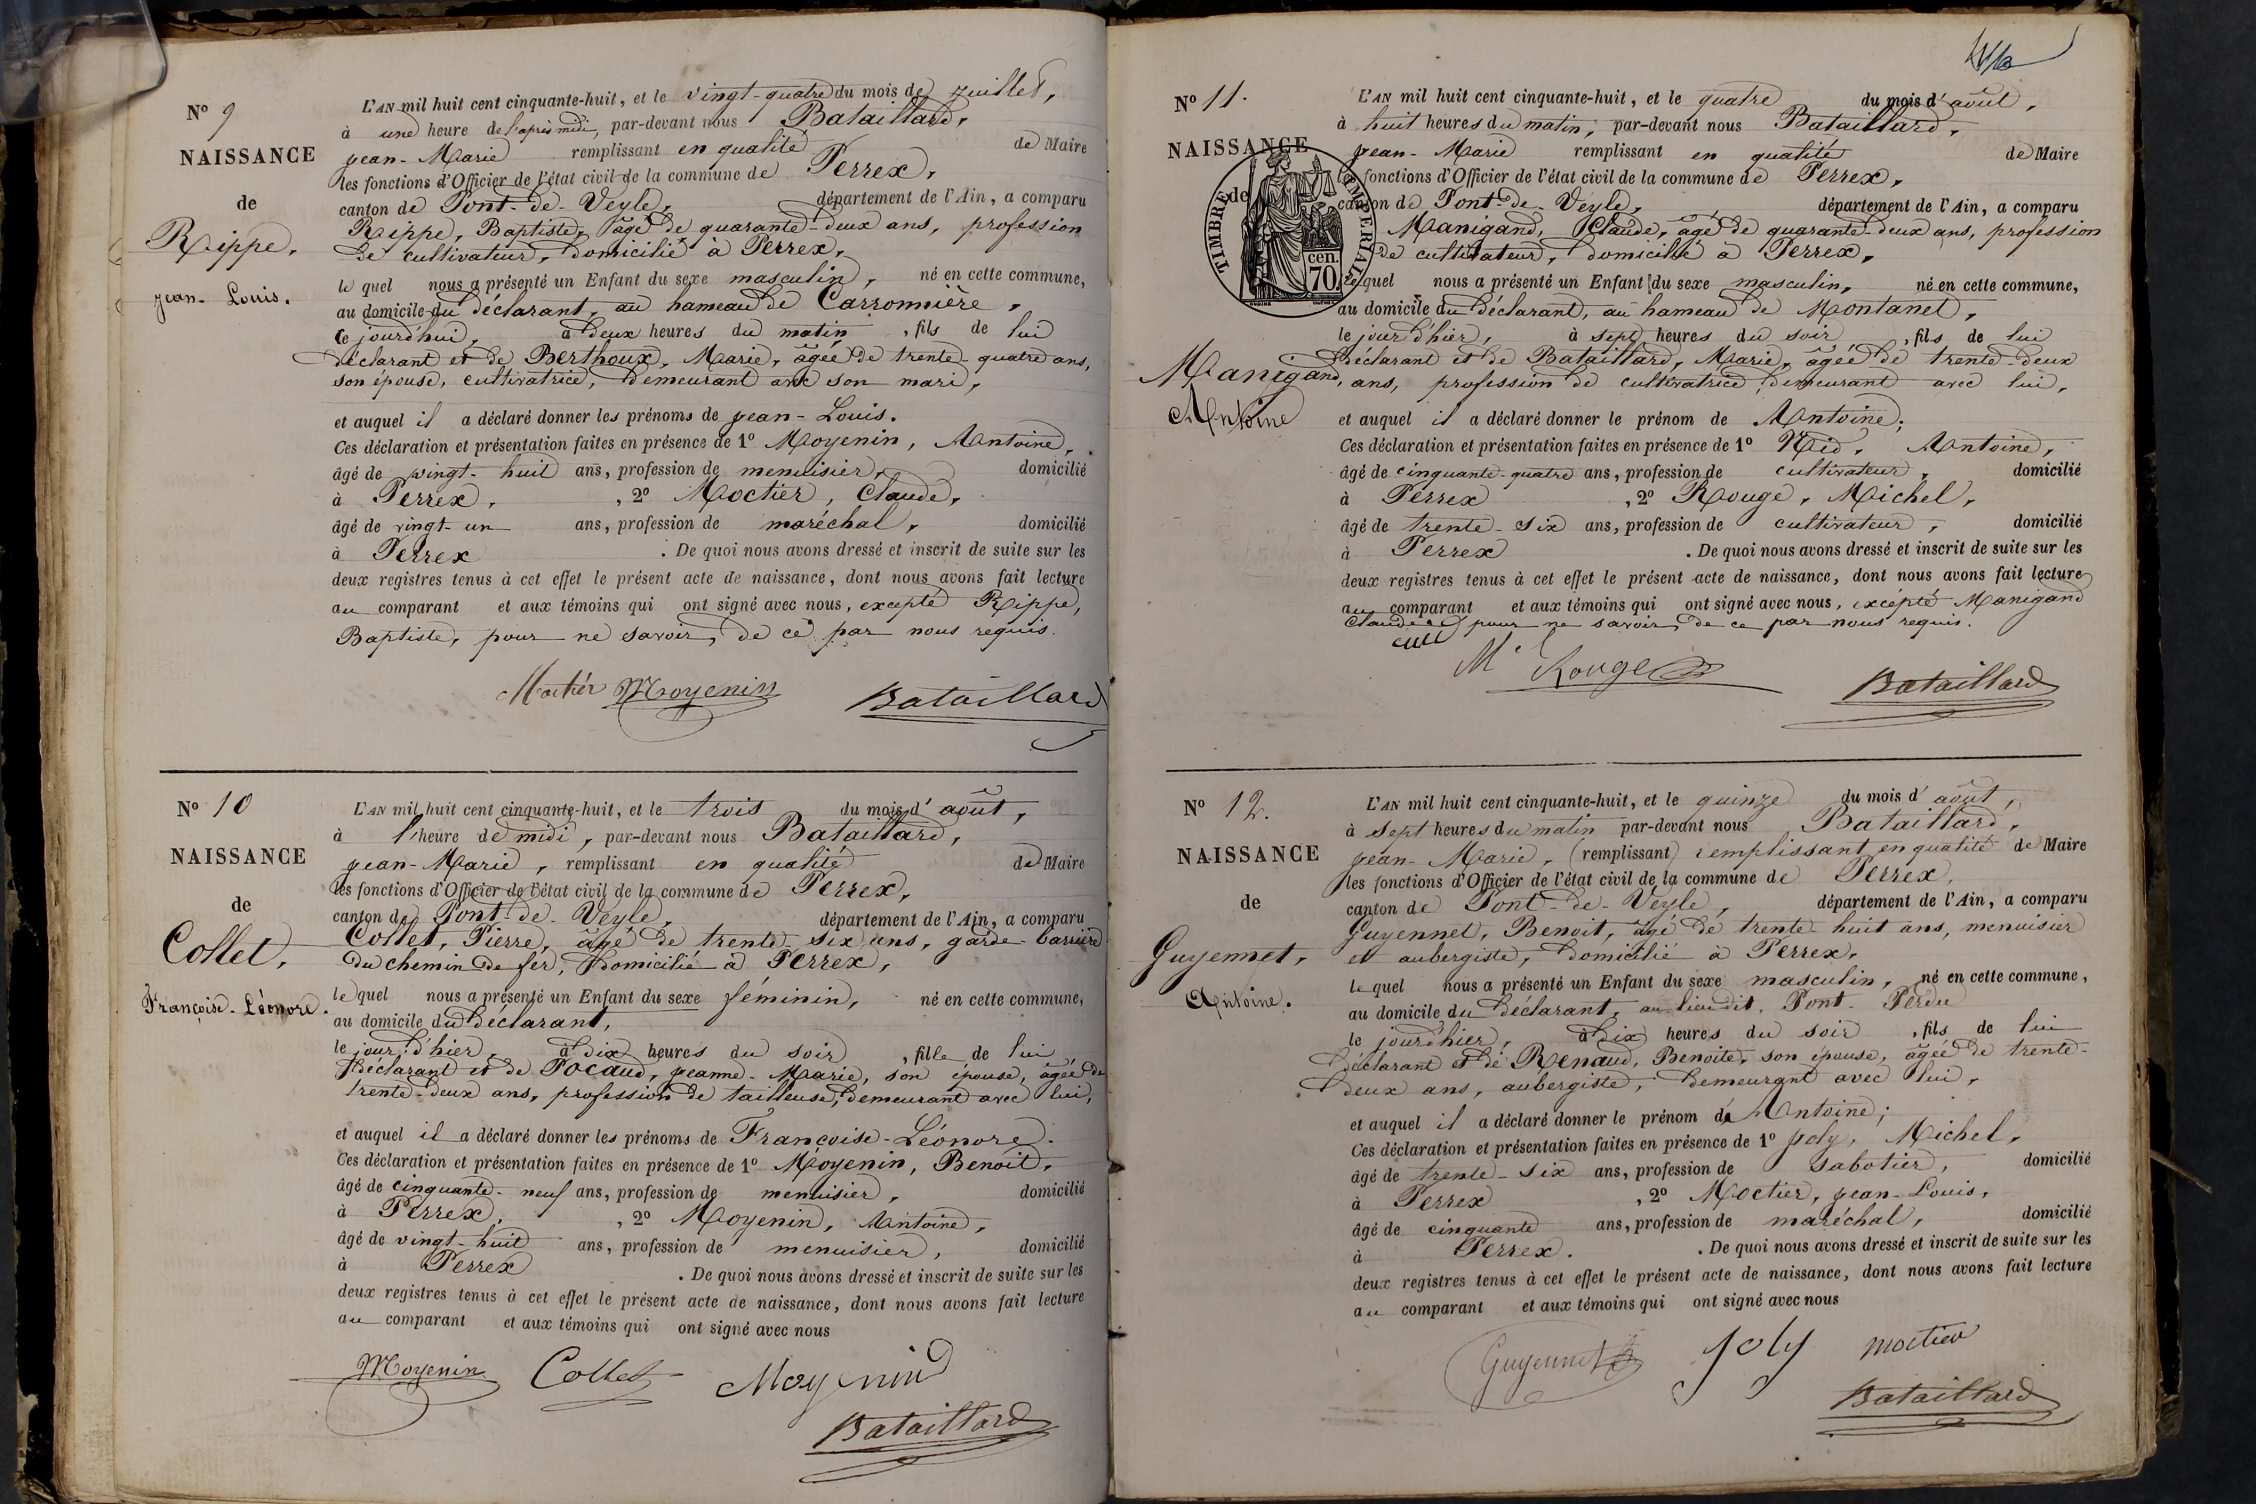 N° 9
NAISSANCE
de
Rippe,
Jean-Louis.
L'AN mil huit cent cinquante-huit, et le vingt-quatre du mois de Juillet,
à une heure de l'après midi, par-devant nous Bataillard,
Jean-Marie remplissant en qualité de Maire
les fonctions d'Officier de l'état civil de la commune de Perrex,
canton de Pont-de-Veyle, département de l'Ain, a comparu
Rippe, Baptiste, âgé de quarante-deux ans, profession
de cultivateur, domicilié à Perrex,
le quel nous a présenté un Enfant du sexe masculin, né en cette commune,
au domicile du déclarant, au hameau de Carronnière,
ce jourd'hui, à deux heures du matin, fils de lui
déclarant et de Berthoux, Marie, âgée de trente-quatre ans,
son épouse, cultivatrice, demeurant avec son mari,
et auquel il a déclaré donner les prénoms de Jean-Louis.
Ces déclaration et présentation faites en présence de 1° Moyenin, Antoine,
âgé de vingt-huit ans, profession de menuisier, domicilié
à Perrex, , 2° Moctier, Claude,
âgé de vingt-un ans, profession de maréchal, domicilié
à Perrex . De quoi nous avons dressé et inscrit de suite sur les
deux registres tenus à cet effet le présent acte de naissance, dont nous avons fait lecture
au comparant et aux témoins qui ont signé avec nous, excepté Rippe,
Baptiste, pour ne savoir, de ce par nous requis.
Moctiér Moyenin Bataillard
N° 10
NAISSANCE
de
Collet,
Françoise-Léonore.
L'AN mil huit cent cinquante-huit, et le trois du mois d'août,
à l'heure de midi, par-devant nous Bataillard,
Jean-Marie, remplissant en qualité de Maire
les fonctions d'Officier de l'état civil de la commune de Perrex,
canton de Pont-de-Veyle, département de l'Ain, a comparu
Collet, Pierre, âgé de trente-six ans, garde-barrière
du chemin de fer, domicilié à Perrex,
le quel nous a présenté un Enfant du sexe féminin, né en cette commune,
au domicile du déclarant,
le jour d'hier, à dix heures du soir, fille de lui
déclarant et de Pocaud, Jeanne-Marie, son épouse, âgée de
trente-deux ans, profession de tailleuse, demeurant avec lui,
et auquel il a déclaré donner les prénoms de Françoise-Léonore.
Ces déclaration et présentation faites en présence de 1° Moyenin, Benoit,
âgé de cinquante-neuf ans, profession de menuisier, domicilié
à Perrex, , 2° Moyenin, Antoine,
âgé de vingt-huit ans, profession de menuisier, domicilié
à Perrex . De quoi nous avons dressé et inscrit de suite sur les
deux registres tenus à cet effet le présent acte de naissance, dont nous avons fait lecture
au comparant et aux témoins qui ont signé avec nous
Moyenin Collet Moyenin
Bataillard
N° 11.
NAISSANCE
de
TIMBRE IMPERIAL
cen.
70.
Manigand,
Antoine
L'AN mil huit cent cinquante-huit, et le quatre du mois d'août,
à huit heures du matin, par-devant nous Bataillard,
Jean-Marie remplissant en qualité de Maire
les fonctions d'Officier de l'état civil de la commune de Perrex,
canton de Pont-de-Veyle, département de l'Ain, a comparu
Manigand, Claude, âgé de quarante-deux ans, profession
de cultivateur, domicilié à Perrex,
le quel nous a présenté un Enfant du sexe masculin, né en cette commune,
au domicile du déclarant, au hameau de Montanet,
le jour d'hier, à sept heures du soir, fils de lui
déclarant et de Bataillard, Marie, âgée de trente-deux
ans, profession de cultivatrice, demeurant avec lui,
et auquel il a déclaré donner le prénom de Antoine;
Ces déclaration et présentation faites en présence de 1° Nid, Antoine,
âgé de cinquante-quatre ans, profession de cultivateur, domicilié
à Perrex , 2° Rouge, Michel,
âgé de trente-six ans, profession de cultivateur, domicilié
à Perrex . De quoi nous avons dressé et inscrit de suite sur les
deux registres tenus à cet effet le présent acte de naissance, dont nous avons fait lecture
au comparant et aux témoins qui ont signé avec nous, excépté Manigand
Claude pour ne savoir, de ce par nous requis.
M. Rouge Bataillard
N° 12.
NAISSANCE
de
Guyennet,
Antoine.
L'AN mil huit cent cinquante-huit, et le quinze du mois d'août,
à sept heures du matin par-devant nous Bataillard,
Jean-Marie, (remplissant) remplissant en qualité de Maire
les fonctions d'Officier de l'état civil de la commune de Perrex,
canton de Pont-de-Veyle, département de l'Ain, a comparu
Guyennet, Benoit, âgé de trente-huit ans, menuisier
et aubergiste, domicilié à Perrex,
le quel nous a présenté un Enfant du sexe masculin, né en cette commune,
au domicile du déclarant, au lieu dit, Pont-Perdu
le jour d'hier, à dix heures du soir, fils de lui
déclarant et de Renaud, Benoite, son épouse, âgée de trente-
deux ans, aubergiste, demeurant avec lui,
et auquel il a déclaré donner le prénom de Antoine;
Ces déclaration et présentation faites en présence de 1° Joly, Michel,
âgé de trente-six ans, profession de sabotier, domicilié
à Perrex , 2° Moctier, Jean-Louis,
âgé de cinquante ans, profession de maréchal, domicilié
à Perrex. . De quoi nous avons dressé et inscrit de suite sur les
deux registres tenus à cet effet le présent acte de naissance, dont nous avons fait lecture
au comparant et aux témoins qui ont signé avec nous
Guyennet Joly moctier
Bataillard